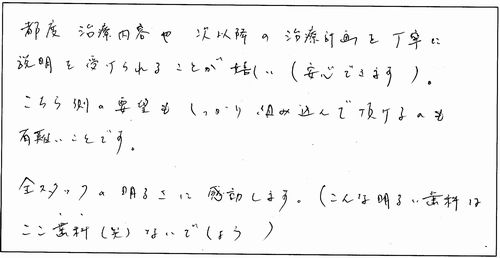 都度 治療内容や 次以降の 治療計画を 丁寧に
説明を受けられることが嬉しい(安心できます)。
こちら側の要望も しっかり 組み込んで頂けるのも
有難いことです。
全スタッフの明るさに 感動します。(こんな明るい歯科は
ここ歯科(笑)ないでしょう)